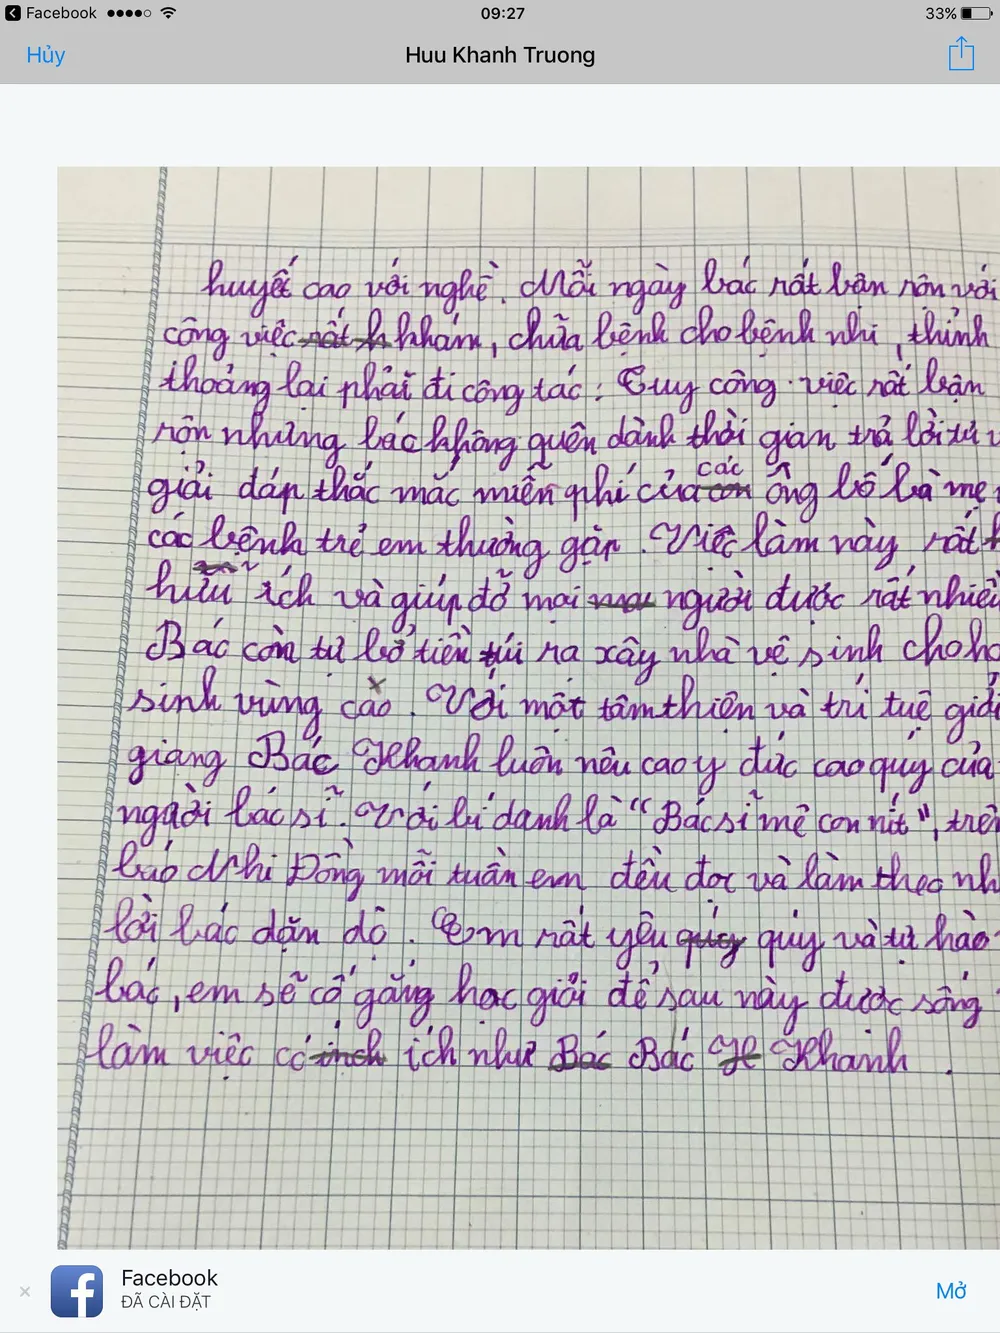 Facebook 09:27 33%
Hủy Huu Khanh Truong
huyết cao với nghề. Mỗi ngày bác rất bận rộn với
công việc rất h khám, chữa bệnh cho bệnh nhi, thỉnh
thoảng lại phải đi công tác. Tuy công việc rất bận
rộn nhưng bác không quên dành thời gian trả lời tư v
giải đáp thắc mắc miễn phí của các ông bố bà mẹ
các bệnh trẻ em thường gặp. Việc làm này rất
hữu ích và giúp đỡ mọi người được rất nhiều
Bác còn tự bỏ tiền túi ra xây nhà vệ sinh cho họ
sinh vùng cao. Với một tâm thiện và trí tuệ giỏi
giang Bác Khanh luôn nêu cao y đức cao quý của
người bác sĩ. Với bí danh là "Bác sĩ mê con nít", trên
báo Nhi Đồng mỗi tuần em đều đọc và làm theo nh
lời bác dặn dò. Em rất yêu quý quý và tự hào
bác, em sẽ cố gắng học giỏi để sau này được sống
làm việc có ính ích như Bác Bác K Khanh.
Facebook
ĐÃ CÀI ĐẶT Mở